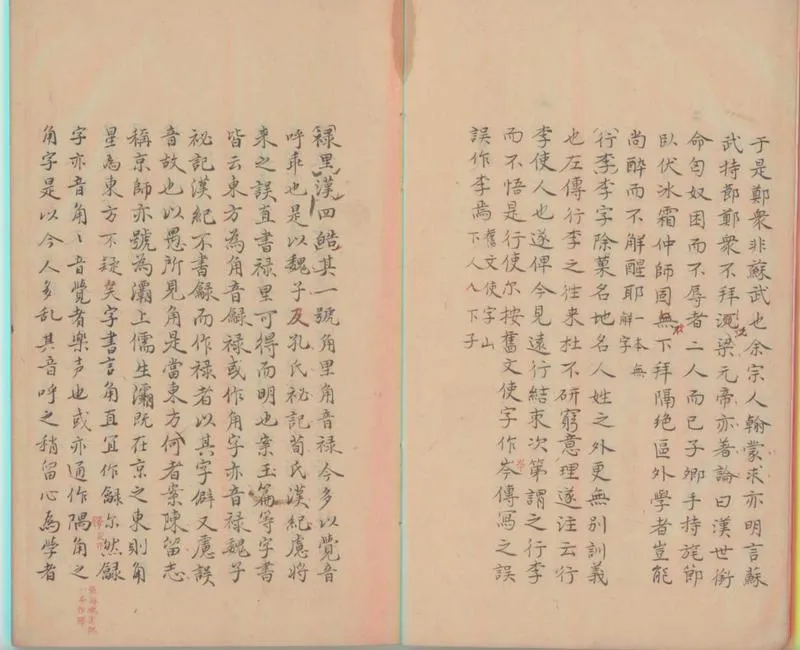 于是鄭衆非蘇武也余宗人翰蒙求亦明言蘇
武持節鄭衆不拜況梁元帝亦著論曰漢世銜
命匈奴困而不辱者二人而已子卿手持旄節
臥伏冰霜仲師固無下拜隔絶區外學者豈能
尚醉而不解醒耶一本無解字
行李李字除菓名地名人姓之外更無別訓義
也左傳行李之徃来杜不研窮意理遂注云行
李使人也遂俾今見遠行結束次第謂之行李
而不悟是行使尔按舊文使字作岑傳寫之誤
誤作李焉舊文使字山下人人下子
禄里漢四皓其一號角里角音禄今多以覺音
呼乖也是以魏子及孔氏祕記荀氏漢紀慮将
来之誤直書禄里可得而明也案玉篇等字書
皆云東方為角音䚄禄或作角字亦音禄魏子
祕記漢紀不書䚄而作禄者以其字僻又慮誤
音故也以愚所見角是當東方何者案陳留志
稱京師亦號為灞上儒生灞既在京之東則角
星為東方不疑矣字書言角直冝作䚄尔然䚄
字亦音角〻音覺者樂声也或亦通作隅角之
角字是以今人多乱其音呼之稍留心為學者